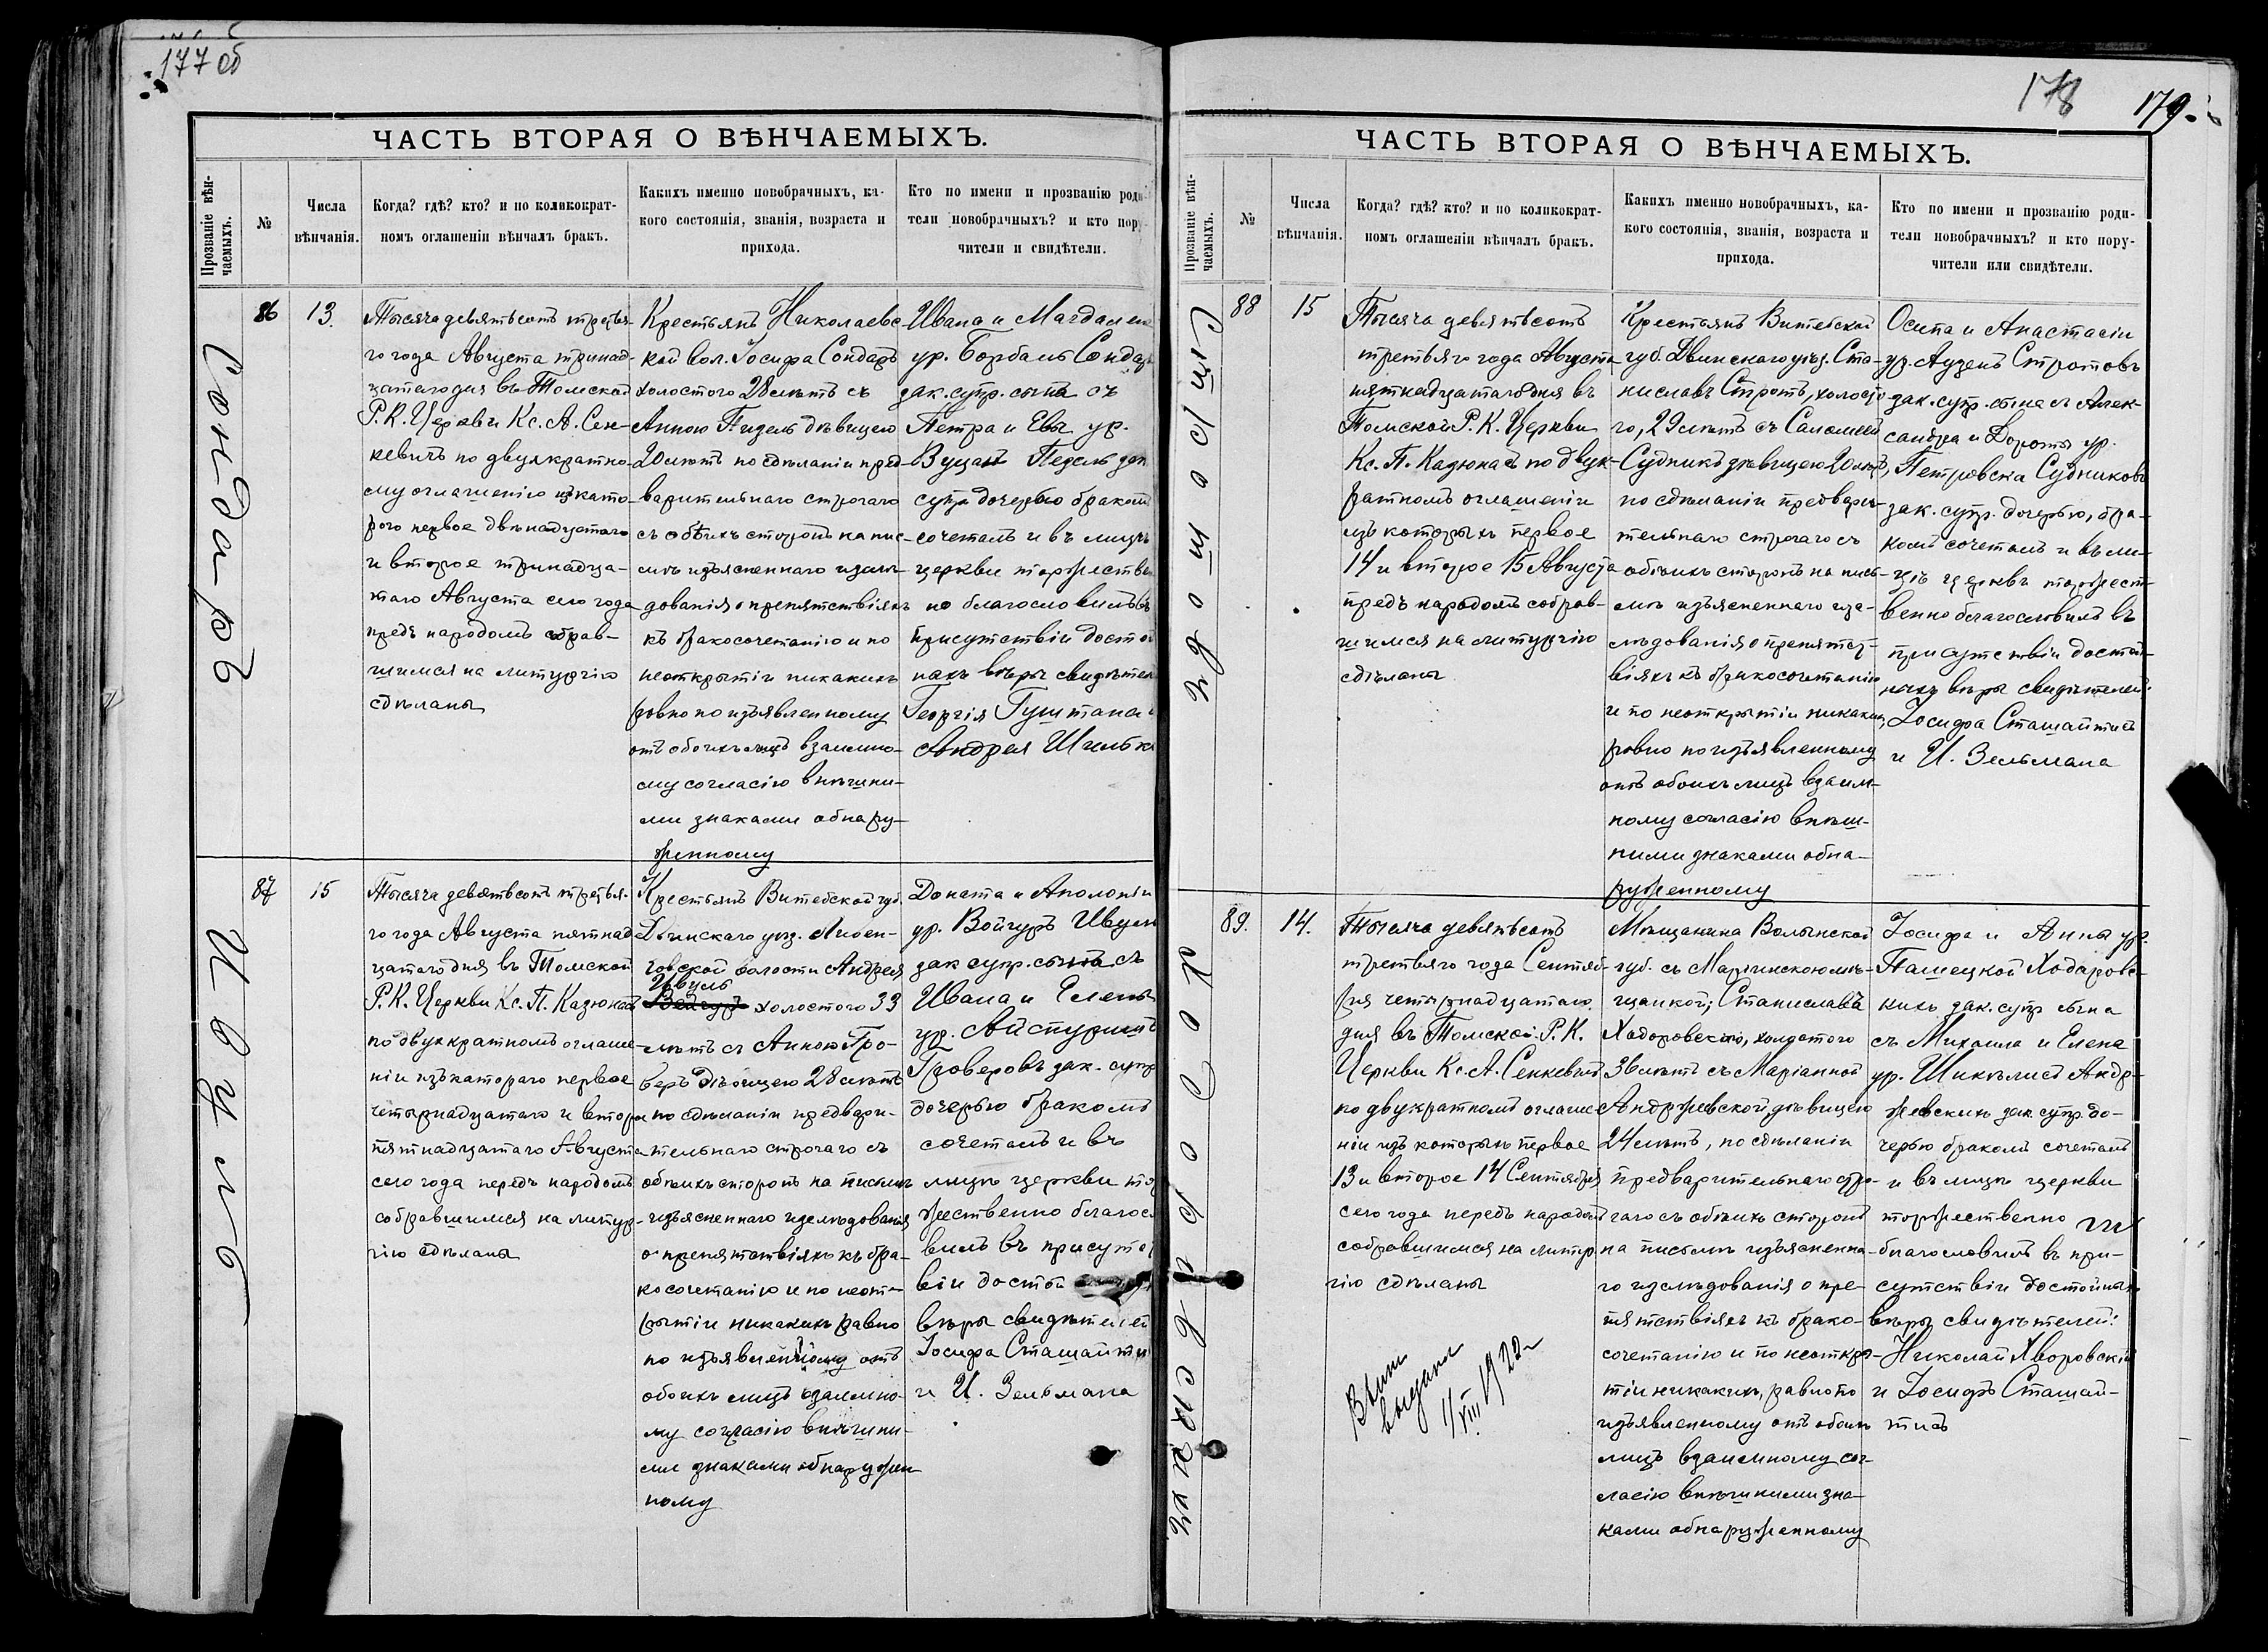 177 об
ЧАСТЬ ВТОРАЯ О ВѢНЧАЕМЫХЪ.
Прозваніе вѣн-
чаемыхъ.
№
Числа
вѣнчанія.
Когда? гдѣ? кто? и по коликократ-
номъ оглашеніи вѣнчалъ бракъ.
Какихъ именно новобрачныхъ, ка-
кого состоянія, званія, возраста и
прихода.
Кто по имени и прозванію роди-
тели новобрачныхъ? и кто пору-
чители и свидѣтели.
Сондаръ
86
13.
Тысяча девятьсотъ третья-
го года Августа тринад-
цатаго дня въ Томской
Р. К. Церкви Кс. А. Сен-
кевичъ по двукратно-
му оглашенію изъ кото-
рого первое двѣнадцатаго
и второе тринадца-
таго Августа сего года
предъ народомъ собрав-
шимся на литургію
сдѣланы
Крестьянъ Николаевс-
кой вол. Іосифа Сондаръ
холостого 28 лѣтъ съ
Анною Пидель дѣвицею
20 лѣтъ по сдѣланіи пред-
варительнаго строгаго
съ обѣихъ сторонъ на пис-
мѣ изъясненнаго изслѣ-
дованія о препятствіяхъ
къ бракосочетанію и по
неоткрытіи никакихъ
ровно по изъявленному
отъ обоихъ лицъ взаимно-
му согласію внѣшни-
ми знаками обнару-
женному
Ивана и Магдален
ур. Борбаль Сондар
зак. супр. сына съ
Петра и Евы ур.
Вуцанъ Педель зак
супр дочерью бракомъ
сочеталъ и въ лицѣ
церкви торжествен
но благословилъ въ
присутствіи достой
ныхъ вѣры свидѣтел
Георгія Гуштана и
Андрея Шилька
Ивуль
87
15
Тысяча девятьсотъ третья-
го года Августа пятнад-
цатаго дня въ Томской
Р. К. Церкви Кс. П. Казюнасъ
по двукратномъ оглаше-
ніи изъ котораго первое
четырнадцатаго и второе
пятнадцатаго Августа
сего года передъ народомъ
собравшимся на литур-
гію сдѣланы
Крестьянъ Витебской губ.
Двинскаго уѣз. Ливен-
говской волости Андрея
Ивуль
холостого 33
лѣтъ съ Анною Про-
веръ дѣвицею 28 лѣтъ
по сдѣланіи предвари-
тельнаго строгаго съ
обѣихъ сторонъ на письмѣ
изъясненнаго изслѣдованія
о препятствіяхъ къ бра-
косочетанію и по неотк-
рытіи никакихъ равно
по изъявленному отъ
обоихъ лицъ взаимно-
му согласію внѣшни-
ми знаками обнаружен
ному
Доната и Аполоніи
ур. Войчуръ Ивуль
зак супр. сына съ
Ивана и Елены
ур.
Проверовъ зак. супр
дочерью бракомъ
сочеталъ и въ
лицѣ церкви тор
жественно благос
вилъ въ присутст
віи достой
вѣры свидѣтелей
Іосифа Сташайтис
и И. Зельмана
178
179.
ЧАСТЬ ВТОРАЯ О ВѢНЧАЕМЫХЪ.
Прозваніе вѣн-
чаемыхъ.
№
Числа
вѣнчанія.
Когда? гдѣ? кто? и по коликократ-
номъ оглашеніи вѣнчалъ бракъ.
Какихъ именно новобрачныхъ, ка-
кого состоянія, званія, возраста и
прихода.
Кто по имени и прозванію роди-
тели новобрачныхъ? и кто пору-
чители или свидѣтели.
Стротовъ
88
15
Тысяча девятьсотъ
третьяго года Августа
пятнадцатаго дня въ
Томской Р. К. Церкви
Кс. П. Казюнасъ по двук-
ратномъ оглашеніи
изъ которыхъ первое
14 и второе 15 Августа
предъ народомъ собрав-
шимся на литургію
сдѣланы
Крестьянъ Витебской
губ. Двинскаго уѣз. Ста-
ниславъ Стротъ, холосто
го, 29 лѣтъ съ Саломеей
Судникъ дѣвицею 20 лѣтъ,
по сдѣланіи предвари-
тельнаго строгаго съ
обѣихъ сторонъ на пись-
мѣ изъясненнаго изс-
лѣдованія о препятст-
віяхъ къ бракосочетанію
и по неоткрытіи никакихъ,
ровно по изъявленному
отъ обоихъ лицъ взаим-
ному согласію внѣш-
ними знаками обна-
руженному
Осипа и Анастасіи
ур. Аузенъ Стротовъ
зак. супр. сына съ Алек-
сандра и Дороты ур.
Петровска Судниковъ
зак. супр. дочерью, бра-
комъ сочеталъ и въ ли-
цѣ церкви торжест-
венно благословилъ въ
присутствіи достой-
ныхъ вѣры свидѣтелей:
Іосифа Сташайтисъ
и И. Зельмана
Ходоровскихъ
89.
14.
Тысяча девятьсотъ
третьяго года Сентяб-
ря четырнадцатаго
дня въ Томской Р. К.
Церкви Кс. А. Сенкевичъ
по двукратномъ оглаше-
ніи изъ которыхъ первое
13 и второе 14 Сентября
сего года передъ народомъ
собравшимся на литур
гію сдѣланы
Мѣщанина Волынской
губ. съ Маріинскою мѣ-
щанкой; Станислава
Ходоровскаго, холостого
36 лѣтъ съ Маріанной
Андржевской, дѣвицею
24 лѣтъ, по сдѣланіи
предварительнаго стро-
гаго съ обѣихъ сторонъ
на письмѣ изъясненна-
го изслѣдованія о пре-
пятствіяхъ къ брако-
сочетанію и по неоткры-
тіи никакихъ, равно по
изъявленному отъ обоихъ
лицъ взаимному сог-
ласію внѣшними зна-
ками обнаруженному
Іосифа и Анны ур.
Пашецкой Ходоровс-
кихъ зак. супр сына
съ Михаила и Елена
ур. Андр-
жевскихъ зак. супр. до-
черью бракомъ сочеталъ
и въ лицѣ церкви
торжественно
благословилъ въ при-
сутствіи достойныхъ
вѣры свидѣтелей:
Николай Яворовскій
и Іосифъ Сташай-
тисъ
Выпис
выдана
1/VIII 1922 г.